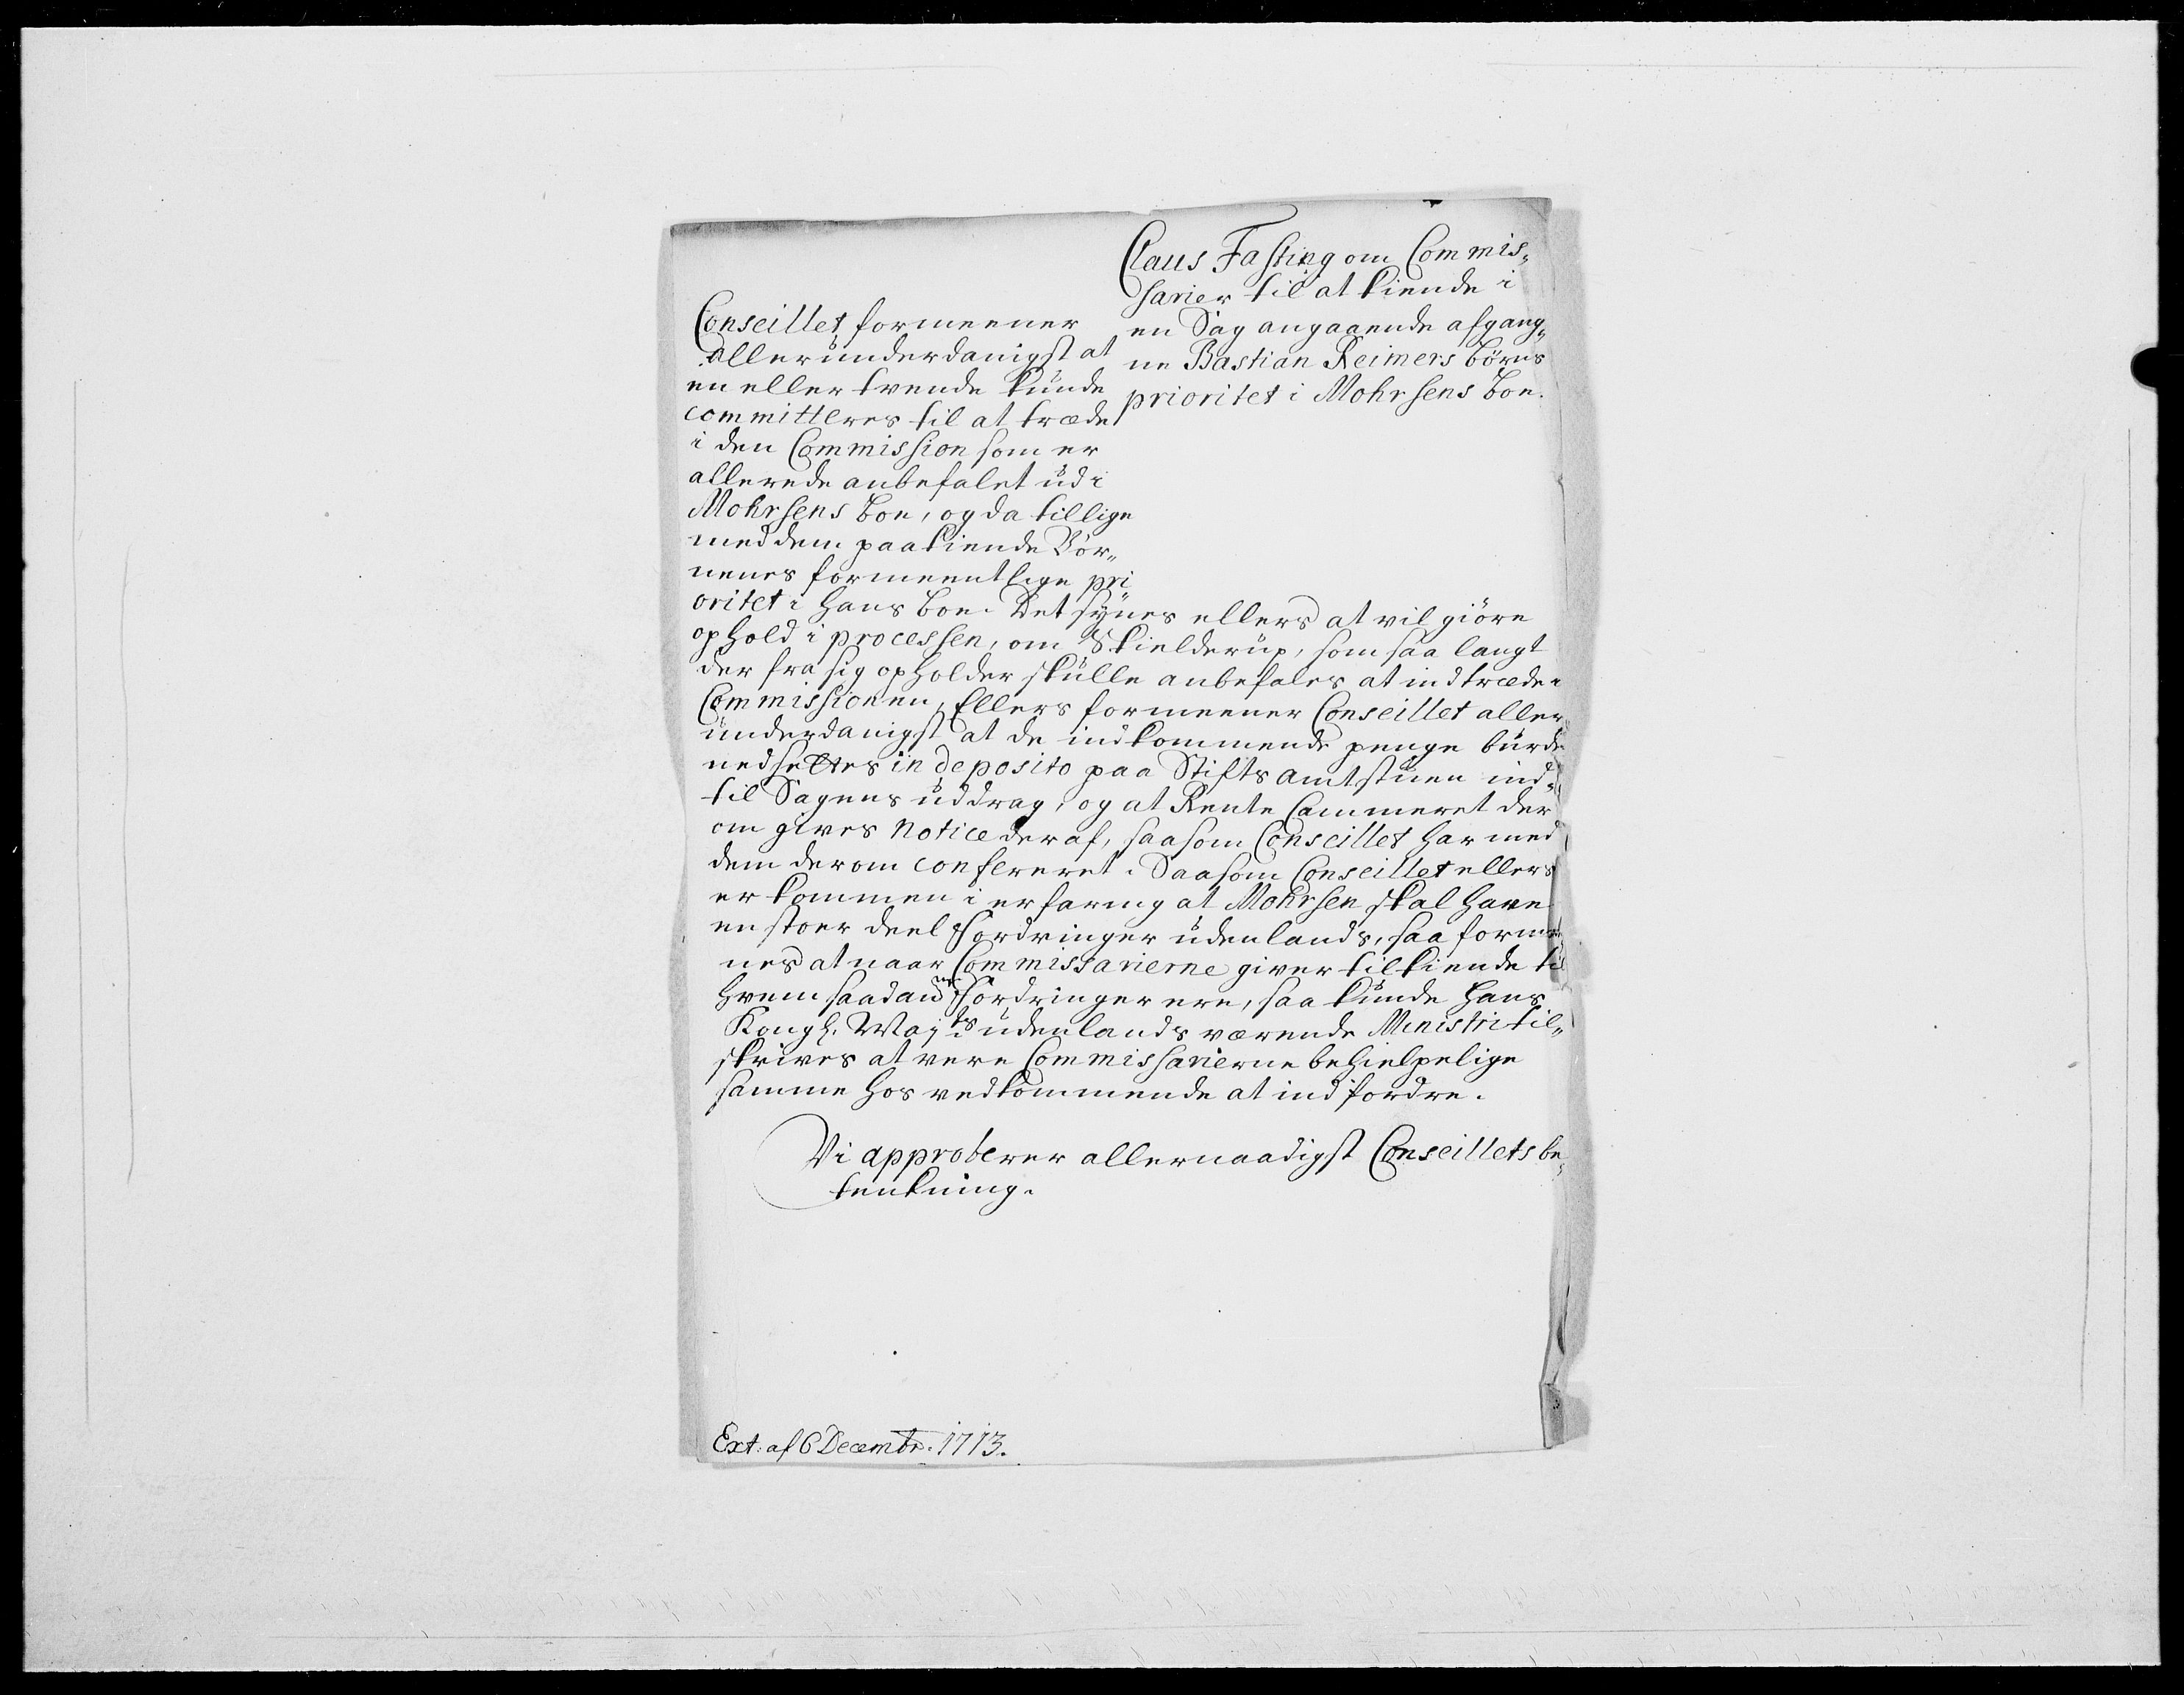 Claus Fasting om Commis„
sarier til at kiende i
en Sag angaaende afgang„
ne Bastian Reimers börns
prioritet i Mohrsens boe.
Conseillet formeener
alleründerdanigst at
en eller tvende kunde
committeres til at træde
i den Commission som er
allerede anbefalet üdi
Mohrsens boe, og da tillige
med dem paakiende Bör„
nenes formeentlige pri
oritet i hans boe. Det synes ellers at vil giöre
ophold i processen, om Skielderüp, som saa langt
der fra sig opholder skulle anbefales at indtræde i
Commissionen, Ellers formeener Conseillet aller
ünderdanigst at de indkommende penge bürde
nedsettes in deposito paa Stiftsamtstüen ind„
til Sagens üddrag, og at Rente Cammeret der
om gives notice deraf, saasom Conseillet har med
dem derom confereret. Saasom Conseillet ellers
er kommen i erfaring at Mohrsen skal have
en stoer deel fordringer üdenlands, saa formee
nes at naar Commissarierne giver tilkiende til
hvem saadanne fordringer ere, saa kunde Hans
Kongl. Maj.ts üdenlands værende Ministri til„
skrives at vere Commissarierne behielpelige
samme hos vedkommende at indfordre.
Vi approberer allernaadigst Conseillets be„
tenkning.
Ext: af 6 Decembr. 1713.